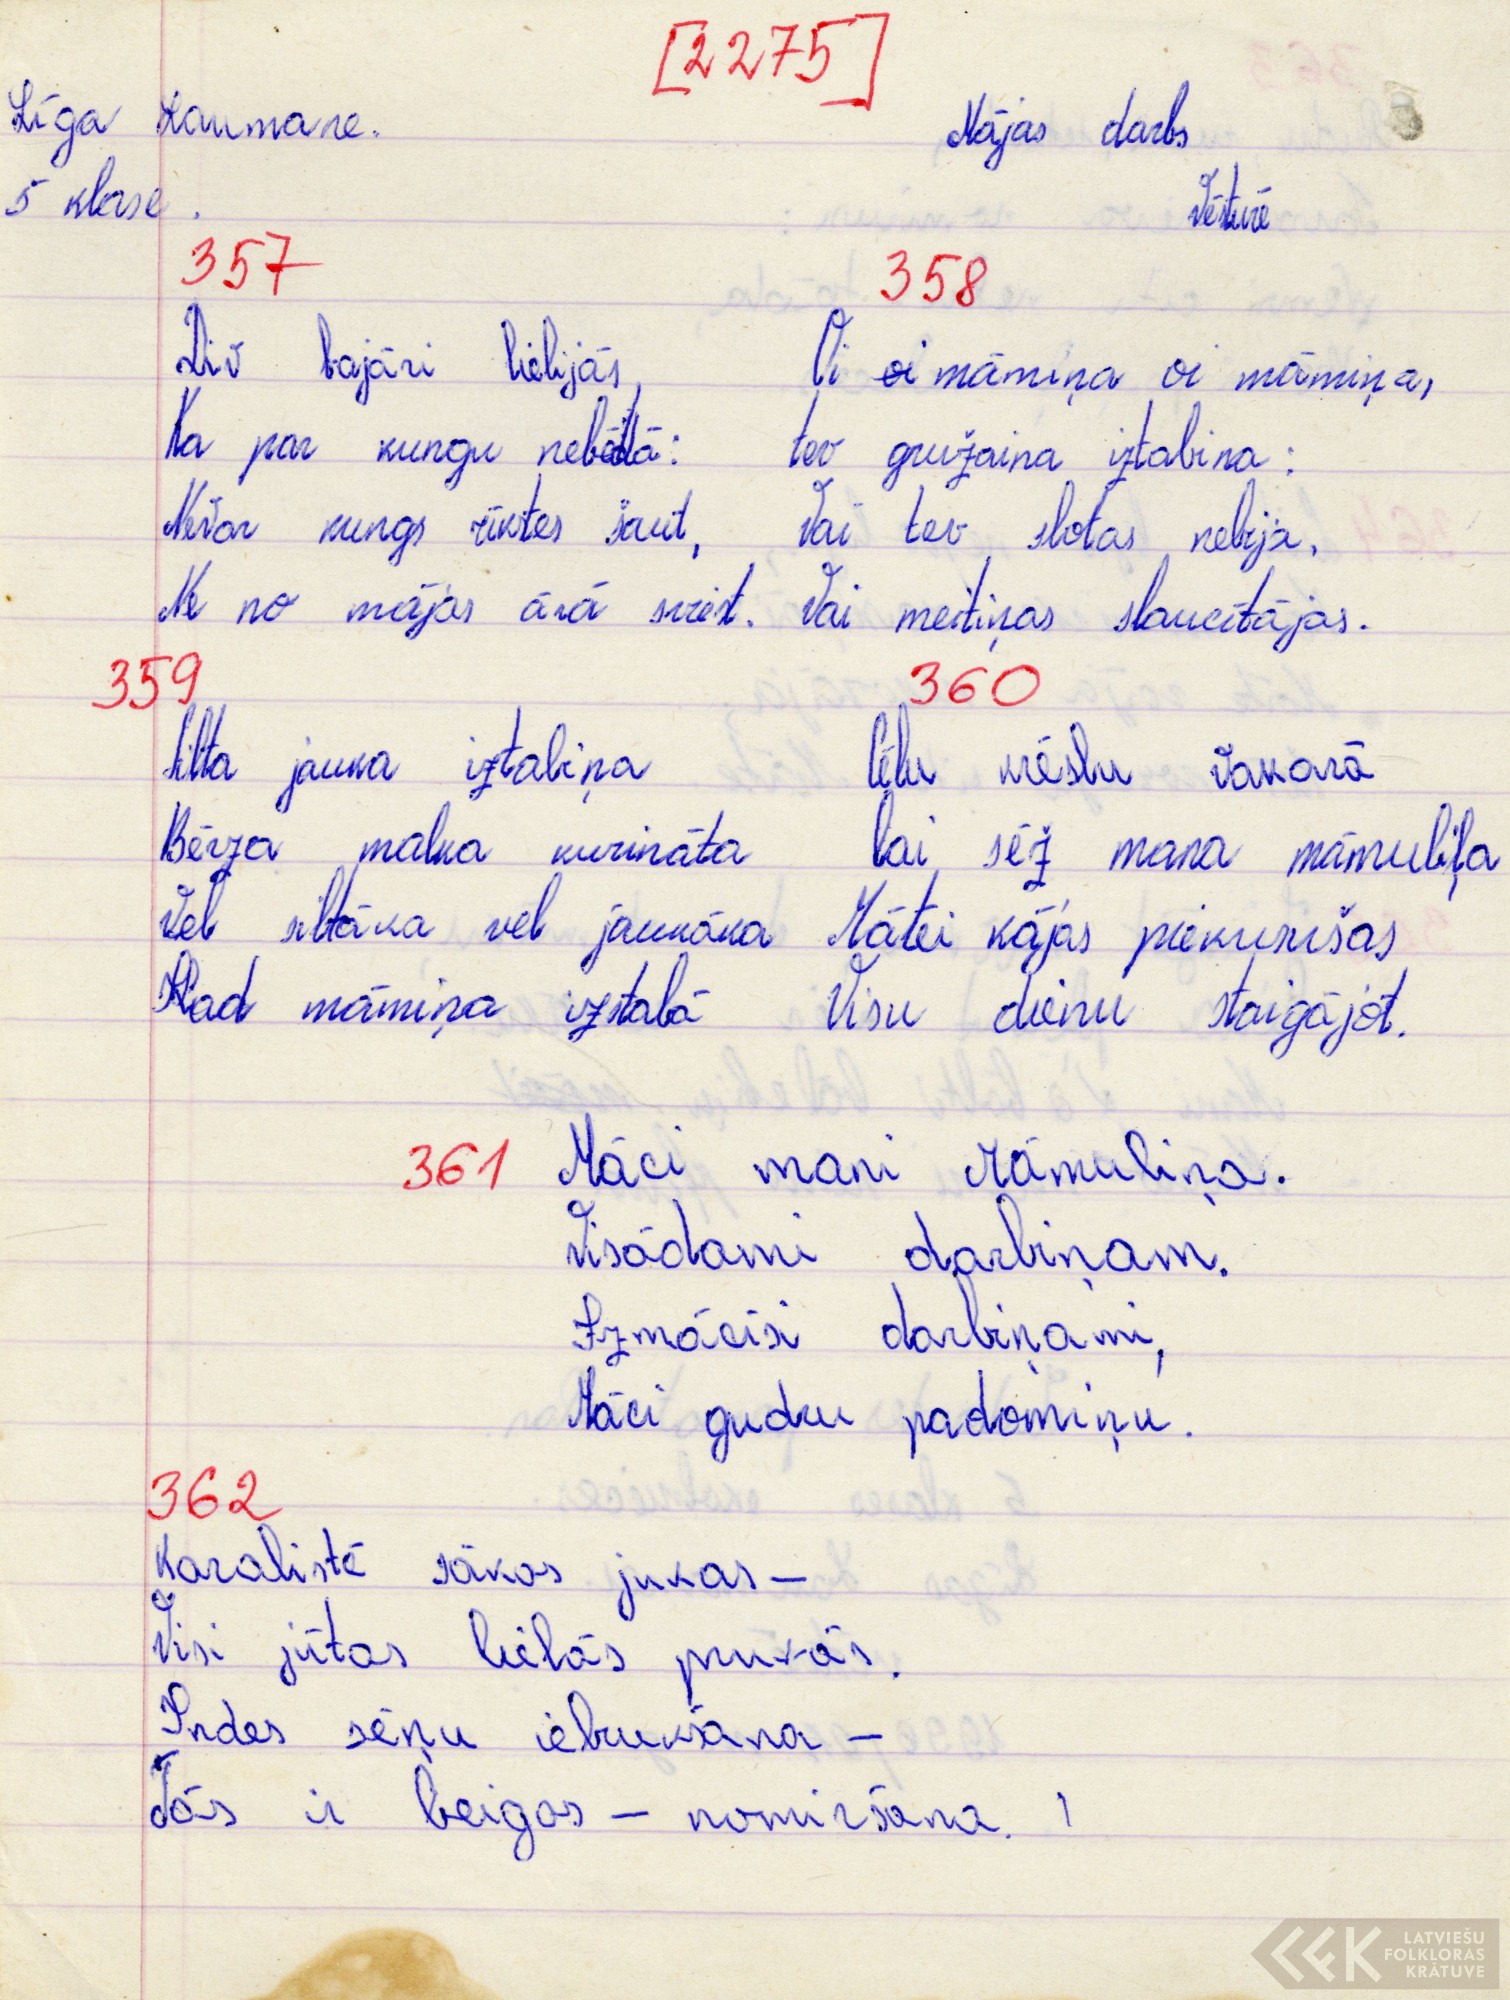 [2275]
Līga Laumane.
Mājas darbs
5 klase.
Vēsturē
357
Div bajāri lielijās,
Ka par kungu nebēdā:
Nevar kungs rīkstes šaut,
Ne no mājas ārā sviest.
358
Oi oi māmiņa oi māmiņa,
tev gružaina iztabina:
Vai tev slotas nebija,
Vai meitiņas slaucītājas.
359
Silta jauka iztabiņa
Bērza malka kurināta
Vel siltāka vel jaukāka
Kad māmiņa izstabā
360
Cēlu krēslu vakarā
lai sēž mana māmuliļa
Mātei kājas piekusušas
Visu dienu staigājot.
361
Māci mani Māmuliņa.
Visādami darbiņam.
Izmācīsi darbiņami,
Māci gudru padomiņu.
362
Karalistē sākas jukas —
Visi jūtas lielās prukās.
Indes sēņu iebrukšana —
Tās ir beigas — nomiršana. !
LATVIEŠU
FOLKLORAS
KRĀTUVE